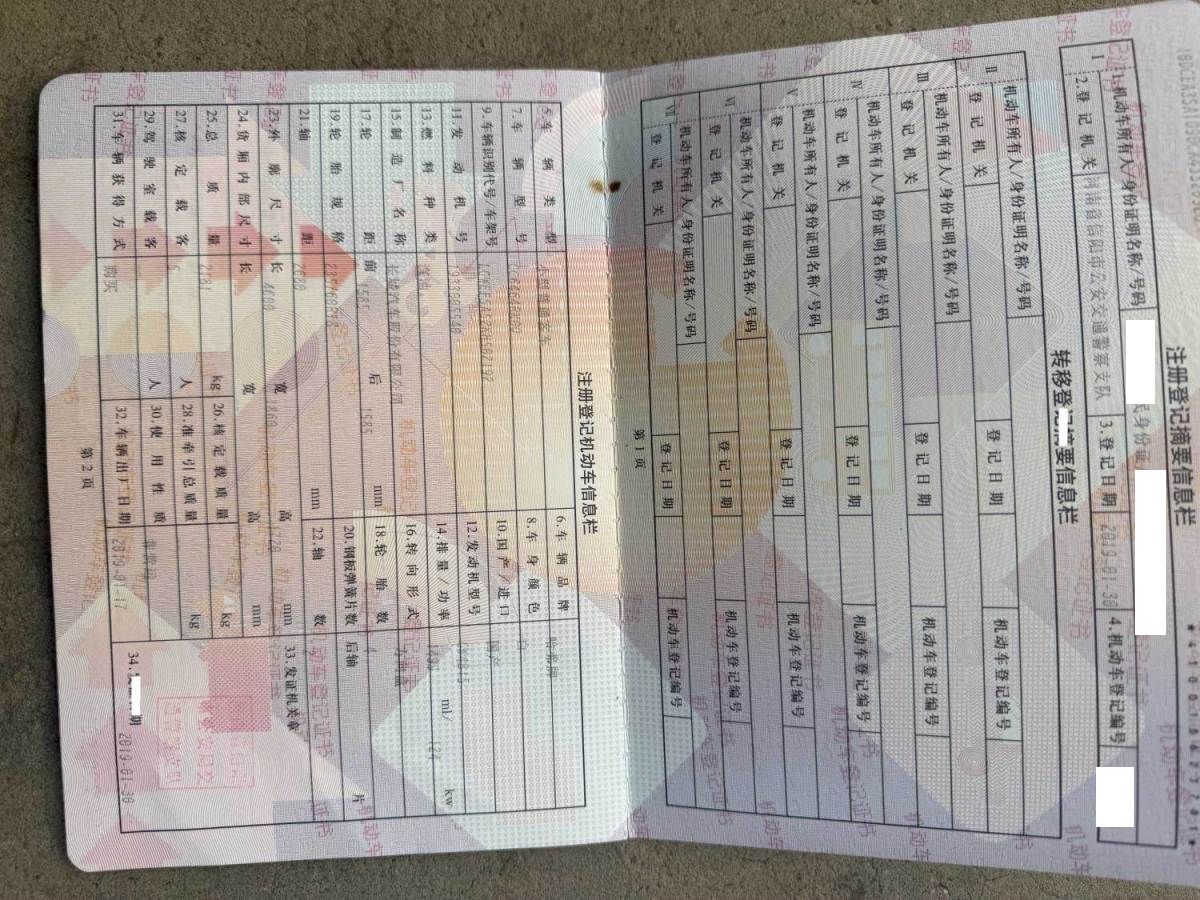 注册登记摘要信息栏
Ⅰ
1.机动车所有人/身份证明名称/号码
2.登记机关 河南省信阳市公安交通警察支队 3.登记日期 2019-01-30 4.机动车登记编号
转移登记摘要信息栏
Ⅱ
机动车所有人/身份证明名称/号码
登记机关 登记日期 机动车登记编号
Ⅲ
机动车所有人/身份证明名称/号码
登记机关 登记日期 机动车登记编号
Ⅳ
机动车所有人/身份证明名称/号码
登记机关 登记日期 机动车登记编号
Ⅴ
机动车所有人/身份证明名称/号码
登记机关 登记日期 机动车登记编号
Ⅵ
机动车所有人/身份证明名称/号码
登记机关 登记日期 机动车登记编号
Ⅶ
机动车所有人/身份证明名称/号码
登记机关 登记日期 机动车登记编号
第1页
注册登记机动车信息栏
5.车辆类型 小型普通客车 6.车辆品牌 哈弗牌
7.车辆型号 8.车身颜色 白
9.车辆识别代号/车架号 10.国产/进口 国产
11.发动机号 12.发动机型号
13.燃料种类 汽油 14.排量/功率 ml/ 124 kw
15.制造厂名称 长城汽车股份有限公司 16.转向形式 方向盘
17.轮距 前 1585 后 1585 mm 18.轮胎数 4
19.轮胎规格 20.钢板弹簧片数 后轴 片
21.轴距 2680 mm 22.轴数
23.外廓尺寸 长 4600 宽 1860 高 1720 mm 33.发证机关章
24.货厢内部尺寸 长 宽 高 mm
25.总质量 2181 kg 26.核定载质量 kg
27.核定载客 5 人 28.准牵引总质量 kg
29.驾驶室载客 人 30.使用性质 非营运
31.车辆获得方式 购买 32.车辆出厂日期 2019-01-17 34. 期 2019-01-30
第2页